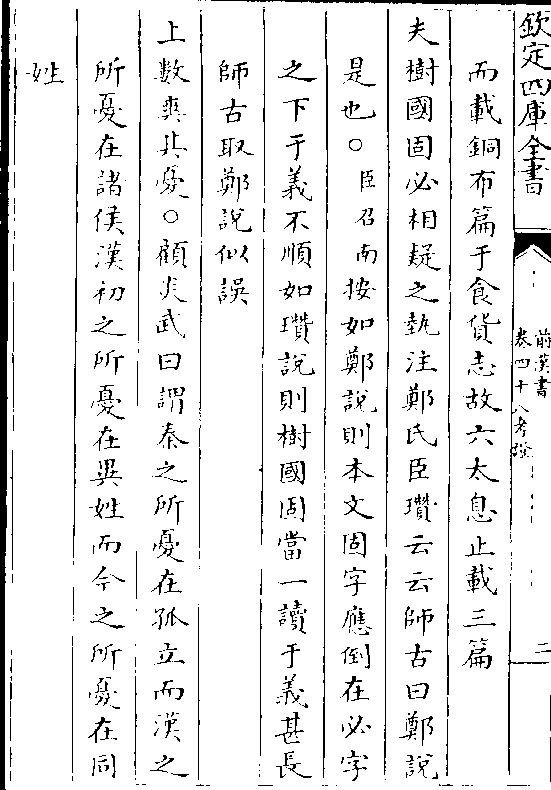 欽定四庫全書
前漢書
卷四十八考證
二
而載銅布篇于食貨志故六太息止載三篇
夫樹國固必相疑之埶注鄭氏臣瓚云云師古曰鄭說
是也○臣召南按如鄭說則本文固字應倒在必字
之下于義不順如瓚說則樹國固當一讀于義甚長
師古取鄭說似誤
上數爽其憂○顧炎武曰謂秦之所憂在孤立而漢之
所憂在諸侯漢初之所憂在異姓而今之所憂在同
姓